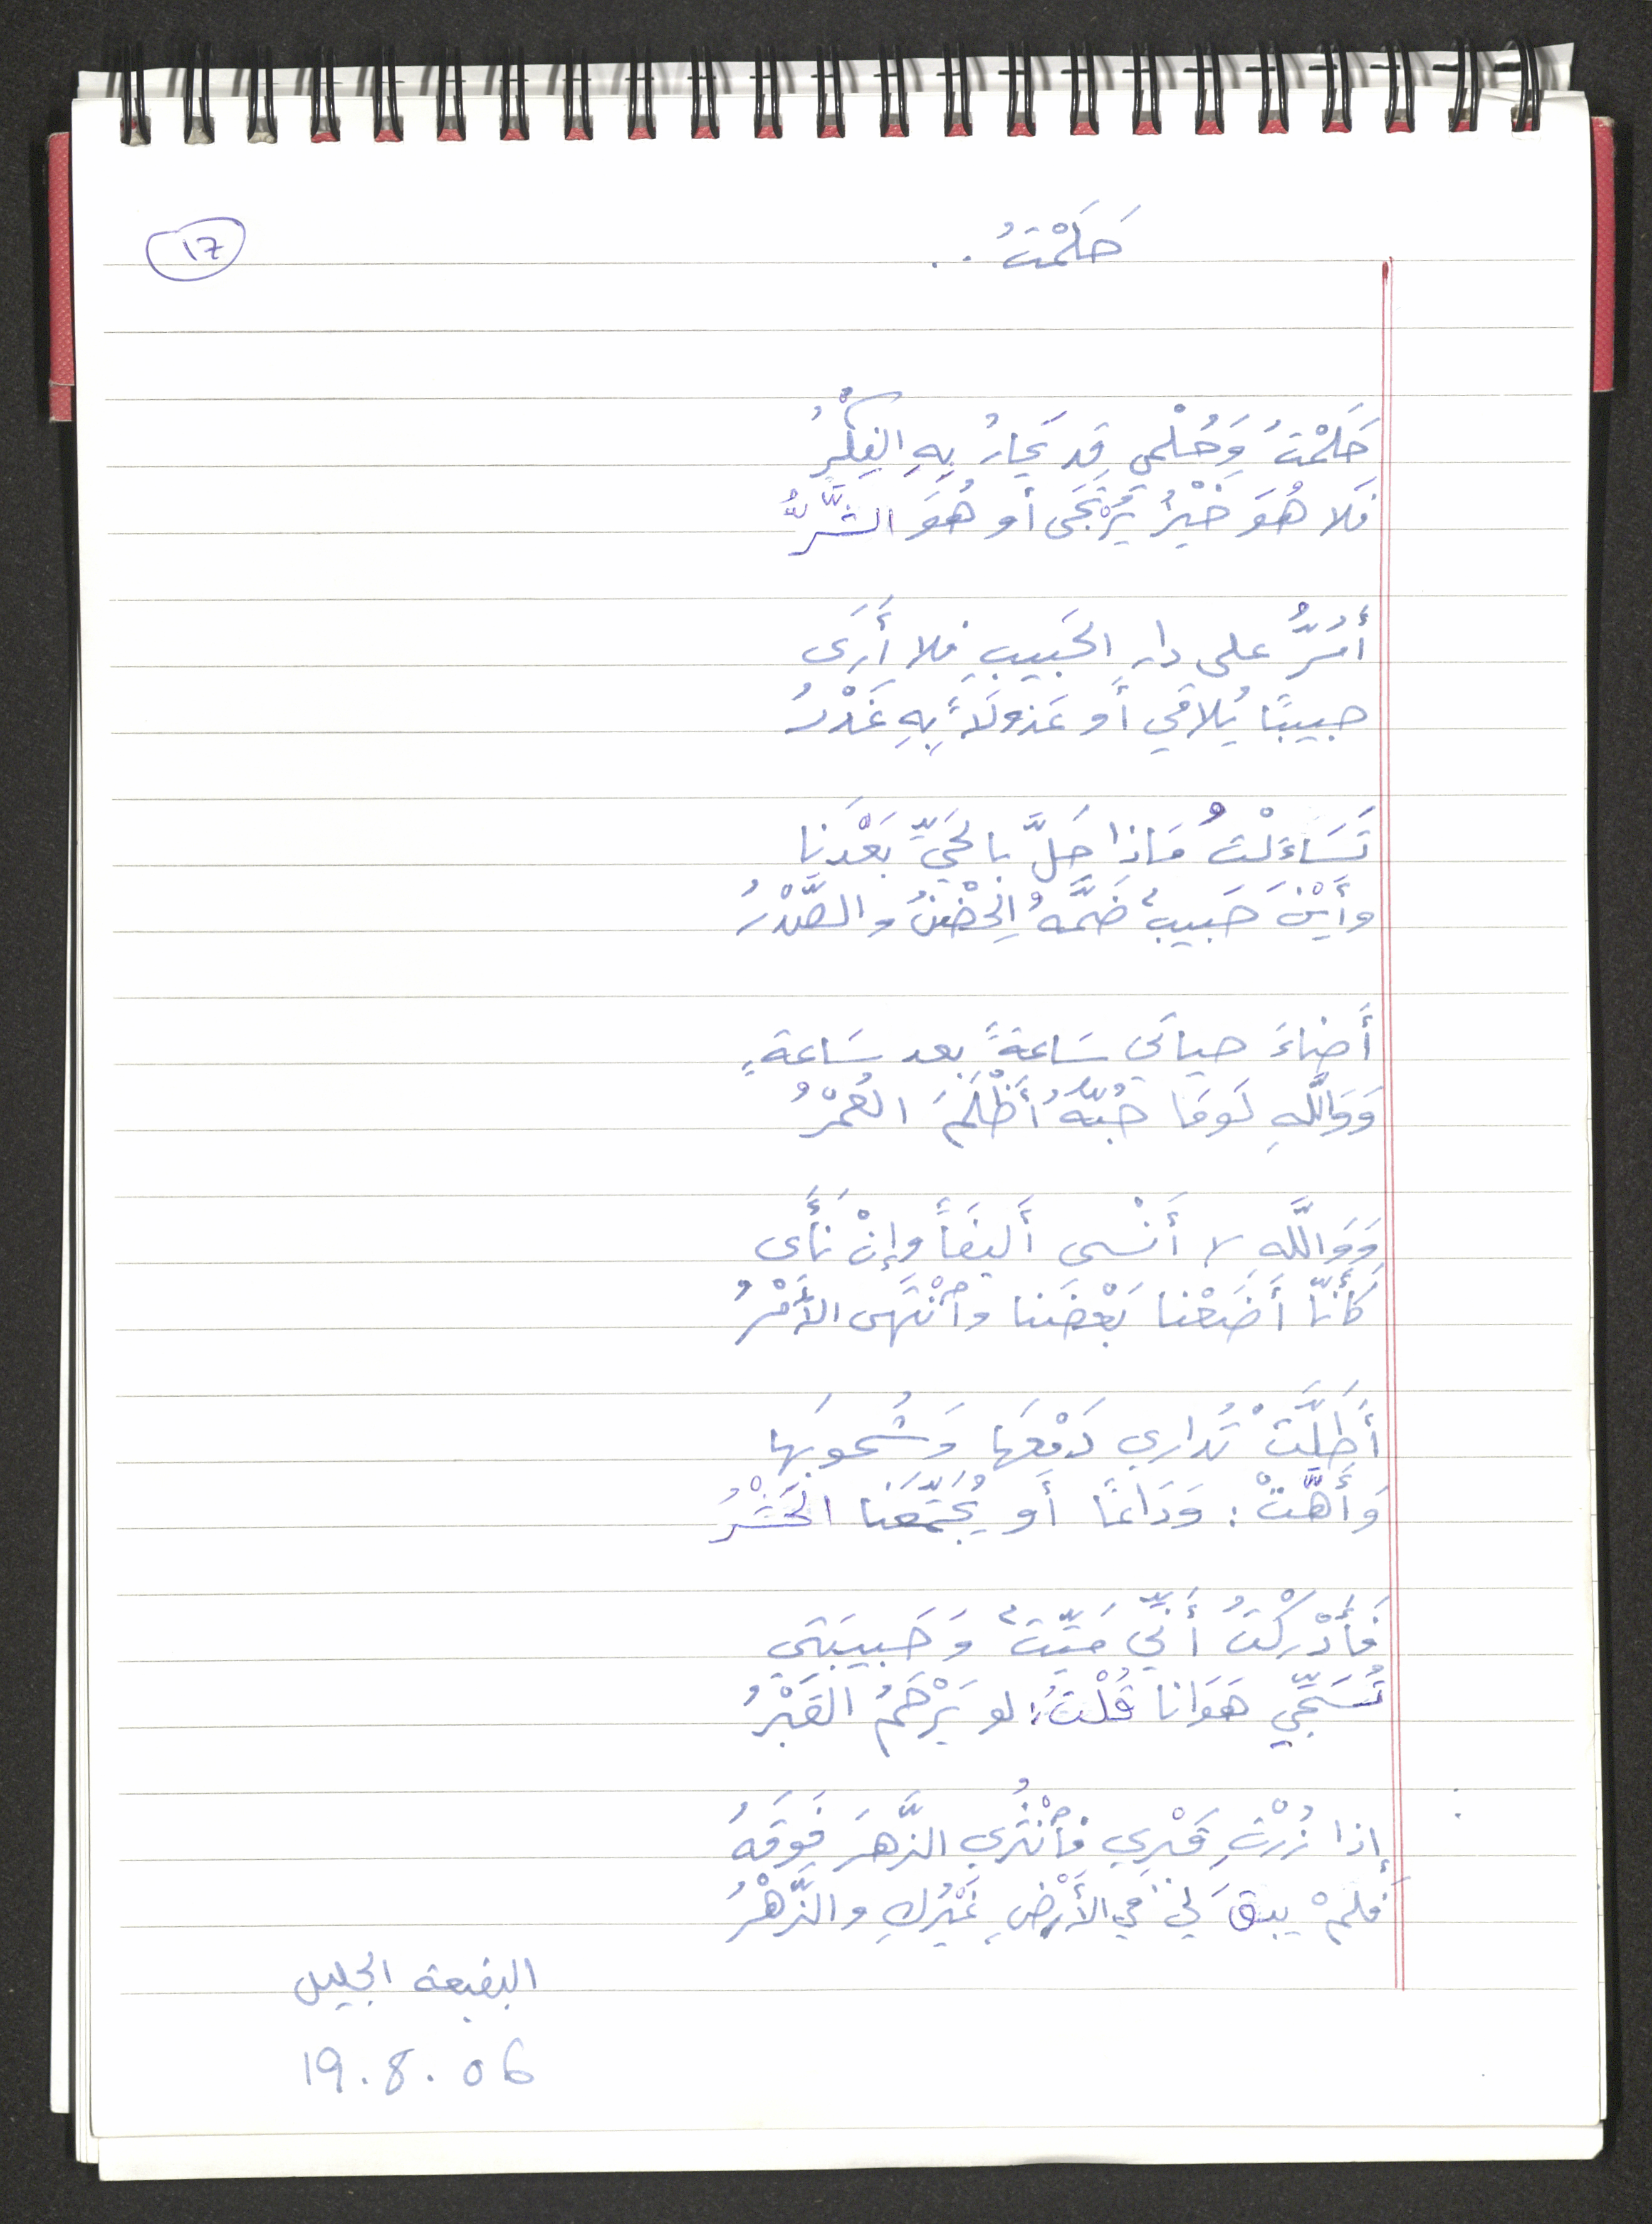 17
حَلَمْتُ ..
حَلَمْتُ وَحُلْمِي قد يَحارُ بِهِ الفِكْرُ
فَلا هُوَ خَيْرٌ يُرْتَجَى أو هُوَ الشَّرُّ
أَمُرُّ على دارِ الحَبيبِ فلا أَرَى
حبيبًا يُلاقي أَو عَذولاً بِهِ غَدْرُ
تَسَاءَلْتُ مَاذا حَلَّ بالحَيِّ بَعْدَنا
وأَيْنَ حَبيبٌ ضَمَّهُ الحِضْنُ والصَّدْرُ
أَضاءَ حياتي سَاعةً بعد سَاعةٍ
وَوَاللَّهِ لَومَا حُبّهُ أَظْلَمَ العُمْرُ
وَوَاللَّهِ لا أَنْسى أَليفَاً وإنْ نَأَى
كَأَنّا أَضَعْنا بَعْضَنا وٱنْتَهَى الأَمْرُ
أَطَلَّتْ تُداري دَمْعَها وَشُحوبَها
وَأَهَّتْ : وَدَاعًا أَو يُجَمِّعَنا الحَشْرُ
فَأَدْرَكْتُ أَنِّي مَيِّتٌ وَحَبيبَتي
تُسَجِّي هَوَانا قُلْتُ: لو يَرْحَمُ القَبْرُ
إذا زُرْتِ قَبْرِي فٱنْثُرِي الزَّهرَ فَوقَهُ
فَلمْ يبقَ لي في الأَرْضِ غَيْرُكِ والزَّهْرُ
البقيعة الجليل
19.8.06